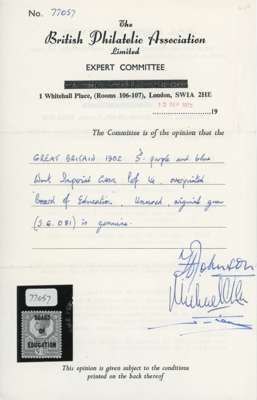 No. 77057
The
British Philatelic Association
Limited
EXPERT COMMITTEE
1 Whitehall Place, (Rooms 106-107), London, SW1A 2HE
12 SEP 1975
19
The Committee is of the opinion that the
GREAT BRITAIN 1902 5d purple and blue
Wmk Imperial Crown Perf 14, overprinted
Board of Education. Unused, original gum
(S.G. O81) is genuine.
Johnson
Michael
77057
BOARD
OF
EDUCATION
This opinion is given subject to the conditions
printed on the back thereof